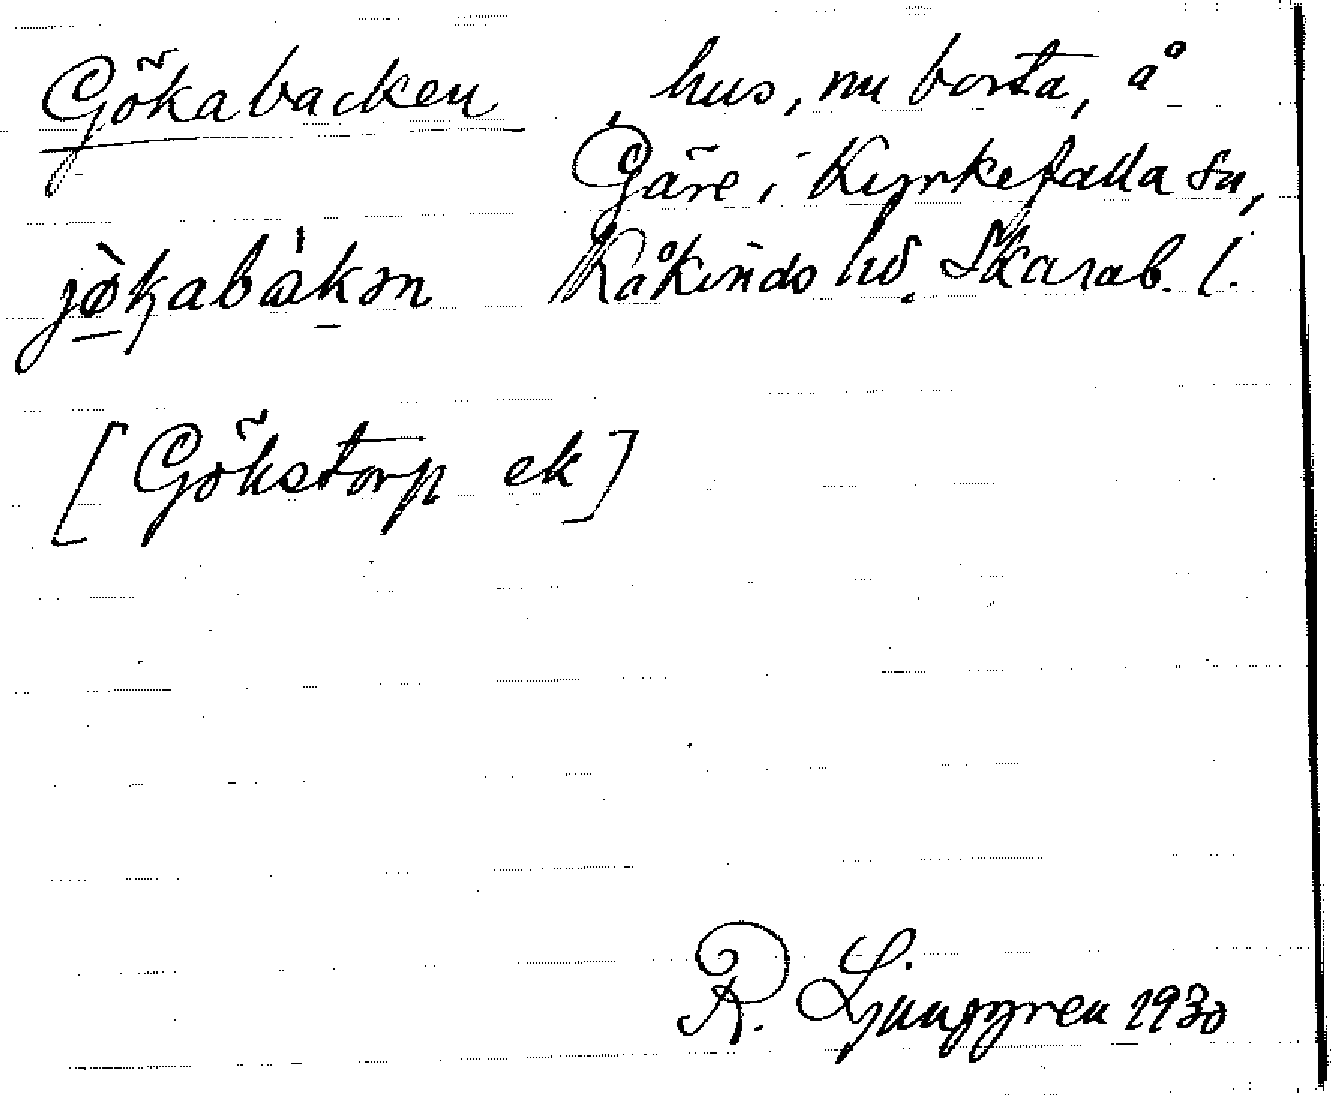 Gökabacken, hus, nu borta, å
Gäre i Kyrkefalla sn,
jø̀kabákən Kåkinds hd. Skarab. l.
[Gökstorp ek]
R. Ljunggren 1930